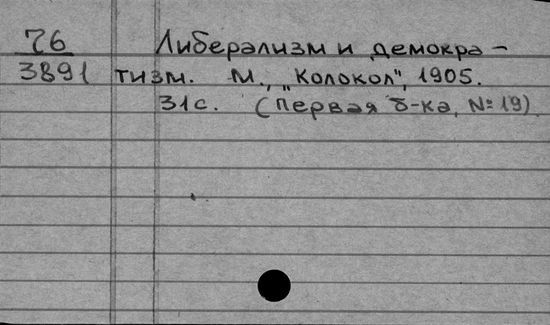 76 Либерализм и демокра-
3891 тизм. М., "Колокол", 1905.
31с. (Первая б-ка, №19)